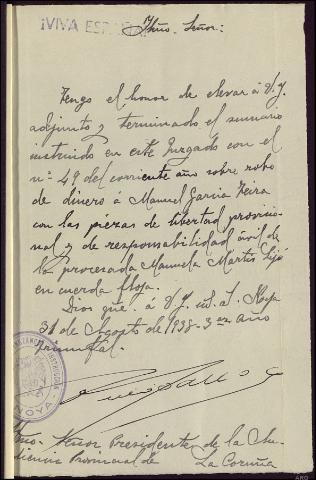 ¡VIVA ESPAÑA!
Iltmo. Señor:
Tengo el honor de elevar á V.I.
adjunto y terminado el sumario
instruido en este Juzgado con el
nº 49 del corriente año sobre robo
de dinero á Manuel Garcia Feira
con las piezas de libertad provisio-
nal y de responsabilidad civil de
la procesada Manuela Martis Lijó
en cuerda floja.
Dios gue. á V.I. ms. as. Noya
31 de Agosto de 1938 - 3er año
triunfal.
NOYA
Iltmo. Señor Presidente de la Au-
diencia Provincial de La Coruña